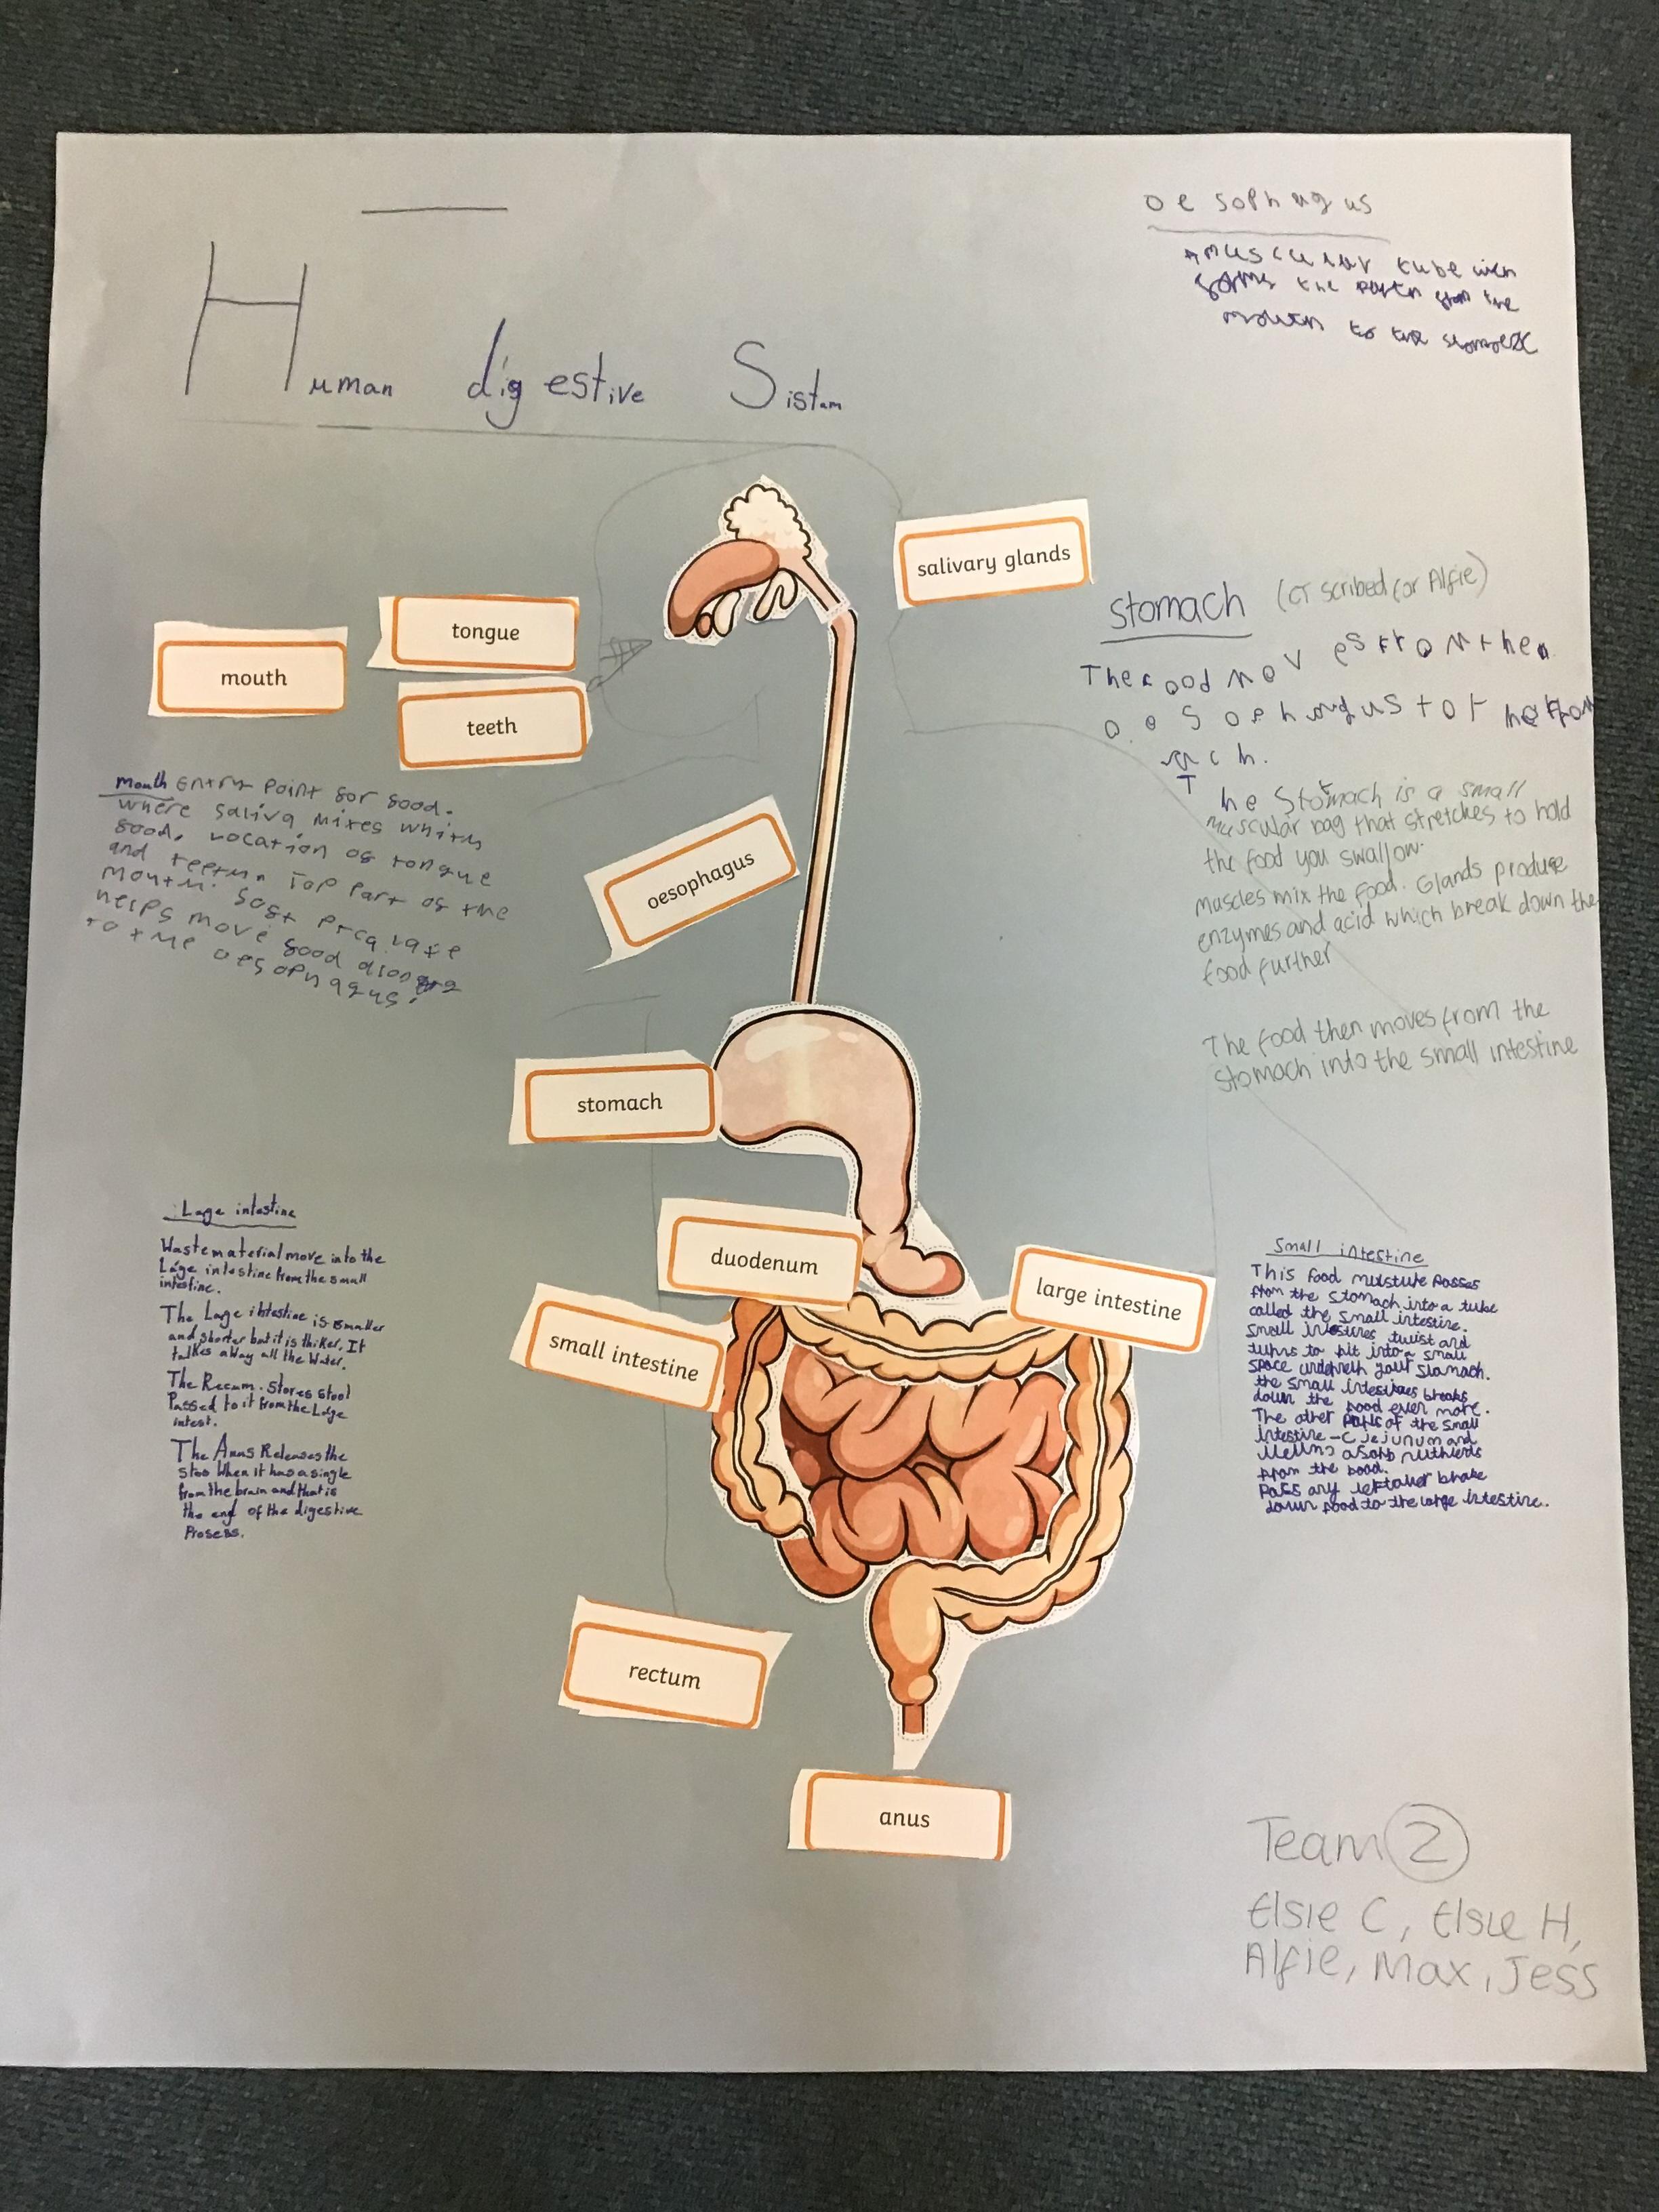 Human digestive Sistam
oesophagus
A muscular tube wich
forms the from the
mouth to the
salivary glands
tongue
mouth
teeth
oesophagus
stomach
duodenum
large intestine
small intestine
rectum
anus
Mouth Entry Point for food.
where saliva mixes
food. Location of tongue
and Top Part of the
mouth. Soft
helps move food along
to the oesophagus.
Stomach (CT scribed for Alfie)
The food moves from the
oesophagus to the

The Stomach is a small
muscular bag that stretches to hold
the food you swallow.
muscles mix the food. Glands produse
enzymes and acid which break down the
food further
The food then moves from the
stomach into the small intestine
Lage intestine
Waste material move into the
Lage intestine from the small
intestine.
The Lage intestine is smaller
and shorter but it is thiker. It
takes away all the Water.
The Recum. Stores stool
Passed to it from the Lage
intest.
The Anus Releases the
stoo When it has a single
from the brain and that is
the end of the digestive
Prosess.
Small intestine
This food muisture passes
from the stomach into a tube
called the small intestine.
Small twist and
turns to fit into a small
space your stomach.
the small breaks
down the food even more.
The other parts of the small
intestine - (jejunum and
asorb
from the food.
Pass any leftover brake
down food to the large intestine.
Team 2
Elsie C, Elsie H,
Alfie, Max, Jess